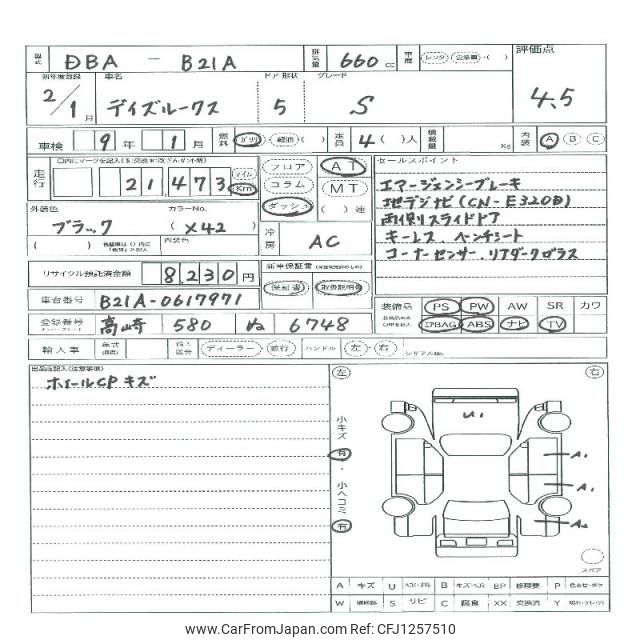 型式 DBA - B21A 排気量 660 cc 車歴 レンタ 自家用 ( ) 評価点
初年度登録 車名 ドア 形状 グレード
2/1月 デイズルークス 5 S 4.5
車検 9年 1月 燃料 ガソリ 軽油 ( ) 定員 4( )人 積載量 Kg 内装 A B C
走行 21,473 マイル Km フロア コラム ダッシュ AT MT ( )速 セールスポイント
エマージェンシーブレーキ
地デジナビ(CN-E320D)
両側スライドドア
キーレス、ベンチシート
コーナーセンサー、リアダークガラス
外装色 カラーNo.
ブラック (X42)
( ) 内装色
冷房 AC
リサイクル預託済金額 8,230円 新車保証書 保証書 取扱説明書
車台番号 B21A-0617971
装備品 PS PW AW SR カワ
エアBAG ABS ナビ TV
登録番号 高崎 580 ぬ 6748
輸入車 年式 輸入区分 ディーラー 並行 ハンドル 左 右 シリアルNo.
出品店記入(注意事項)
ホイールCPキズ
左 右
小キズ 有 ・ 小ヘコミ 有
U1
A1
A1
A2
スペア
A キズ U B BP 修理要 P
W S サビ C 腐食 XX 交換済 Y
www.CarFromJapan.com - CFJ1257510